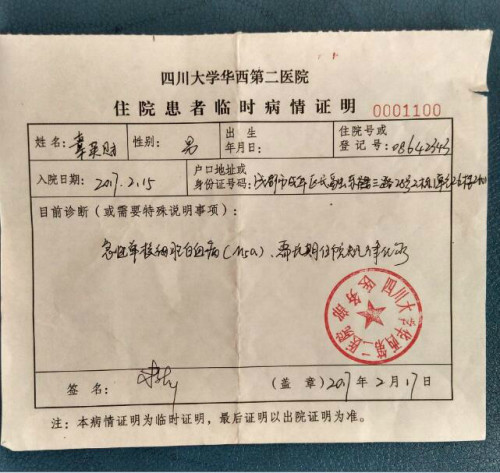 四川大学华西第二医院
住院患者临时病情证明 0001100
姓名: 性别: 男 出生年月日: 住院号或登记号: 08642343
入院日期: 2017.2.15 户口地址或身份证号码: 成都市成华区
目前诊断(或需要特殊说明事项):
急性单核细胞白血病(M5a)、需长期住院
四川大学华西第二医院
医务部
签名: (盖章) 2017年2月17日
注: 本病情证明为临时证明，最后证明以出院证明为准。